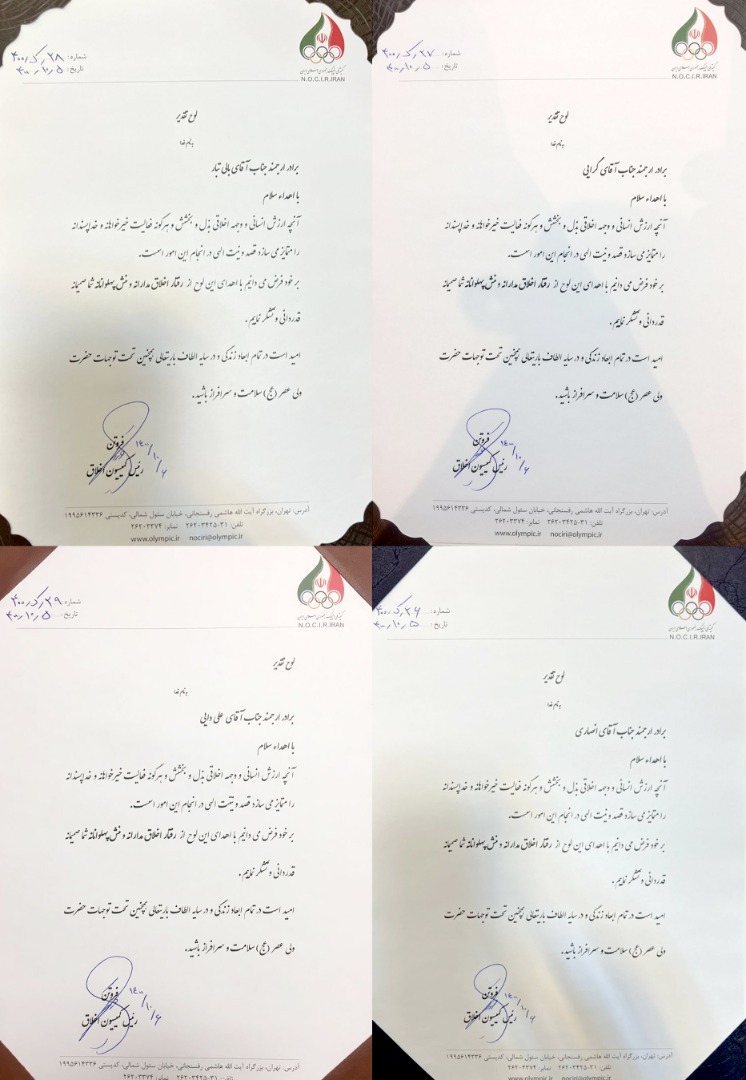 شماره: ۲۸رک ر۴۰۰
تاریخ: ۵ر۱۰ر۴۰۰
N.O.C.I.R.IRAN
لوح تقدیر
بنام خدا
برادر ارجمند جناب آقای بالی تبار
با اهداء سلام
آنچه ارزش انسانی و وجهه اخلاقی بذل و بخشش و هرگونه فعالیت خیرخواهانه و خداپسندانه
را متمایز می سازد قصد و نیت الهی در انجام این امور است.
بر خود فرض می دانیم با اهدای این لوح از رفتار اخلاق مدارانه و منش پهلوانانه شما صمیمانه
قدردانی و تشکر نماییم.
امید است در تمام ابعاد زندگی و در سایه الطاف باریتعالی همچنین تحت توجهات حضرت
ولی عصر (عج) سلامت و سرافراز باشید.
فروتن
رئیس کمیسیون اخلاق
۱۴۰۰/۱۰/۶
آدرس: تهران، بزرگراه آیت الله هاشمی رفسنجانی، خیابان سئول شمالی، کدپستی ۱۹۹۵۶۱۴۳۳۶
تلفن: ۳۱-۲۶۲۰۳۴۲۵ نمابر: ۲۶۲۰۳۳۷۴
www.olympic.ir nociri@olympic.ir
شماره: ۲۷رک ر۴۰۰
تاریخ: ۵ر۱۰ر۴۰۰
N.O.C.I.R.IRAN
لوح تقدیر
بنام خدا
برادر ارجمند جناب آقای گرایی
با اهداء سلام
آنچه ارزش انسانی و وجهه اخلاقی بذل و بخشش و هرگونه فعالیت خیرخواهانه و خداپسندانه
را متمایز می سازد قصد و نیت الهی در انجام این امور است.
بر خود فرض می دانیم با اهدای این لوح از رفتار اخلاق مدارانه و منش پهلوانانه شما صمیمانه
قدردانی و تشکر نماییم.
امید است در تمام ابعاد زندگی و در سایه الطاف باریتعالی همچنین تحت توجهات حضرت
ولی عصر (عج) سلامت و سرافراز باشید.
فروتن
رئیس کمیسیون اخلاق
۱۴۰۰/۱۰/۶
آدرس: تهران، بزرگراه آیت الله هاشمی رفسنجانی، خیابان سئول شمالی، کدپستی ۱۹۹۵۶۱۴۳۳۶
تلفن: ۳۱-۲۶۲۰۳۴۲۵ نمابر: ۲۶۲۰۳۳۷۴
www.olympic.ir nociri@olympic.ir
شماره: ۲۹رک ر۴۰۰
تاریخ: ۵ر۱۰ر۴۰۰
N.O.C.I.R.IRAN
لوح تقدیر
بنام خدا
برادر ارجمند جناب آقای علی دایی
با اهداء سلام
آنچه ارزش انسانی و وجهه اخلاقی بذل و بخشش و هرگونه فعالیت خیرخواهانه و خداپسندانه
را متمایز می سازد قصد و نیت الهی در انجام این امور است.
بر خود فرض می دانیم با اهدای این لوح از رفتار اخلاق مدارانه و منش پهلوانانه شما صمیمانه
قدردانی و تشکر نماییم.
امید است در تمام ابعاد زندگی و در سایه الطاف باریتعالی همچنین تحت توجهات حضرت
ولی عصر (عج) سلامت و سرافراز باشید.
فروتن
رئیس کمیسیون اخلاق
۱۴۰۰/۱۰/۶
آدرس: تهران، بزرگراه آیت الله هاشمی رفسنجانی، خیابان سئول شمالی، کدپستی ۱۹۹۵۶۱۴۳۳۶
تلفن: ۳۱-۲۶۲۰۳۴۲۵ نمابر: ۲۶۲۰۳۳۷۴
شماره: ۲۶رک ر۴۰۰
تاریخ: ۵ر۱۰ر۴۰۰
N.O.C.I.R.IRAN
لوح تقدیر
بنام خدا
برادر ارجمند جناب آقای انصاری
با اهداء سلام
آنچه ارزش انسانی و وجهه اخلاقی بذل و بخشش و هرگونه فعالیت خیرخواهانه و خداپسندانه
را متمایز می سازد قصد و نیت الهی در انجام این امور است.
بر خود فرض می دانیم با اهدای این لوح از رفتار اخلاق مدارانه و منش پهلوانانه شما صمیمانه
قدردانی و تشکر نماییم.
امید است در تمام ابعاد زندگی و در سایه الطاف باریتعالی همچنین تحت توجهات حضرت
ولی عصر (عج) سلامت و سرافراز باشید.
فروتن
رئیس کمیسیون اخلاق
۱۴۰۰/۱۰/۶
آدرس: تهران، بزرگراه آیت الله هاشمی رفسنجانی، خیابان سئول شمالی، کدپستی ۱۹۹۵۶۱۴۳۳۶
تلفن: ۳۱-۲۶۲۰۳۴۲۵ نمابر: ۲۶۲۰۳۳۷۴